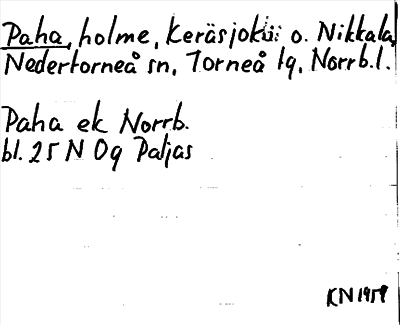 Paha, holme, Keräsjoki: o. Nikkala,
Nedertorneå sn, Torneå tg, Norrb.l.
Paha ek Norrb.
bl. 25 N 0g Paljas
KN 1959